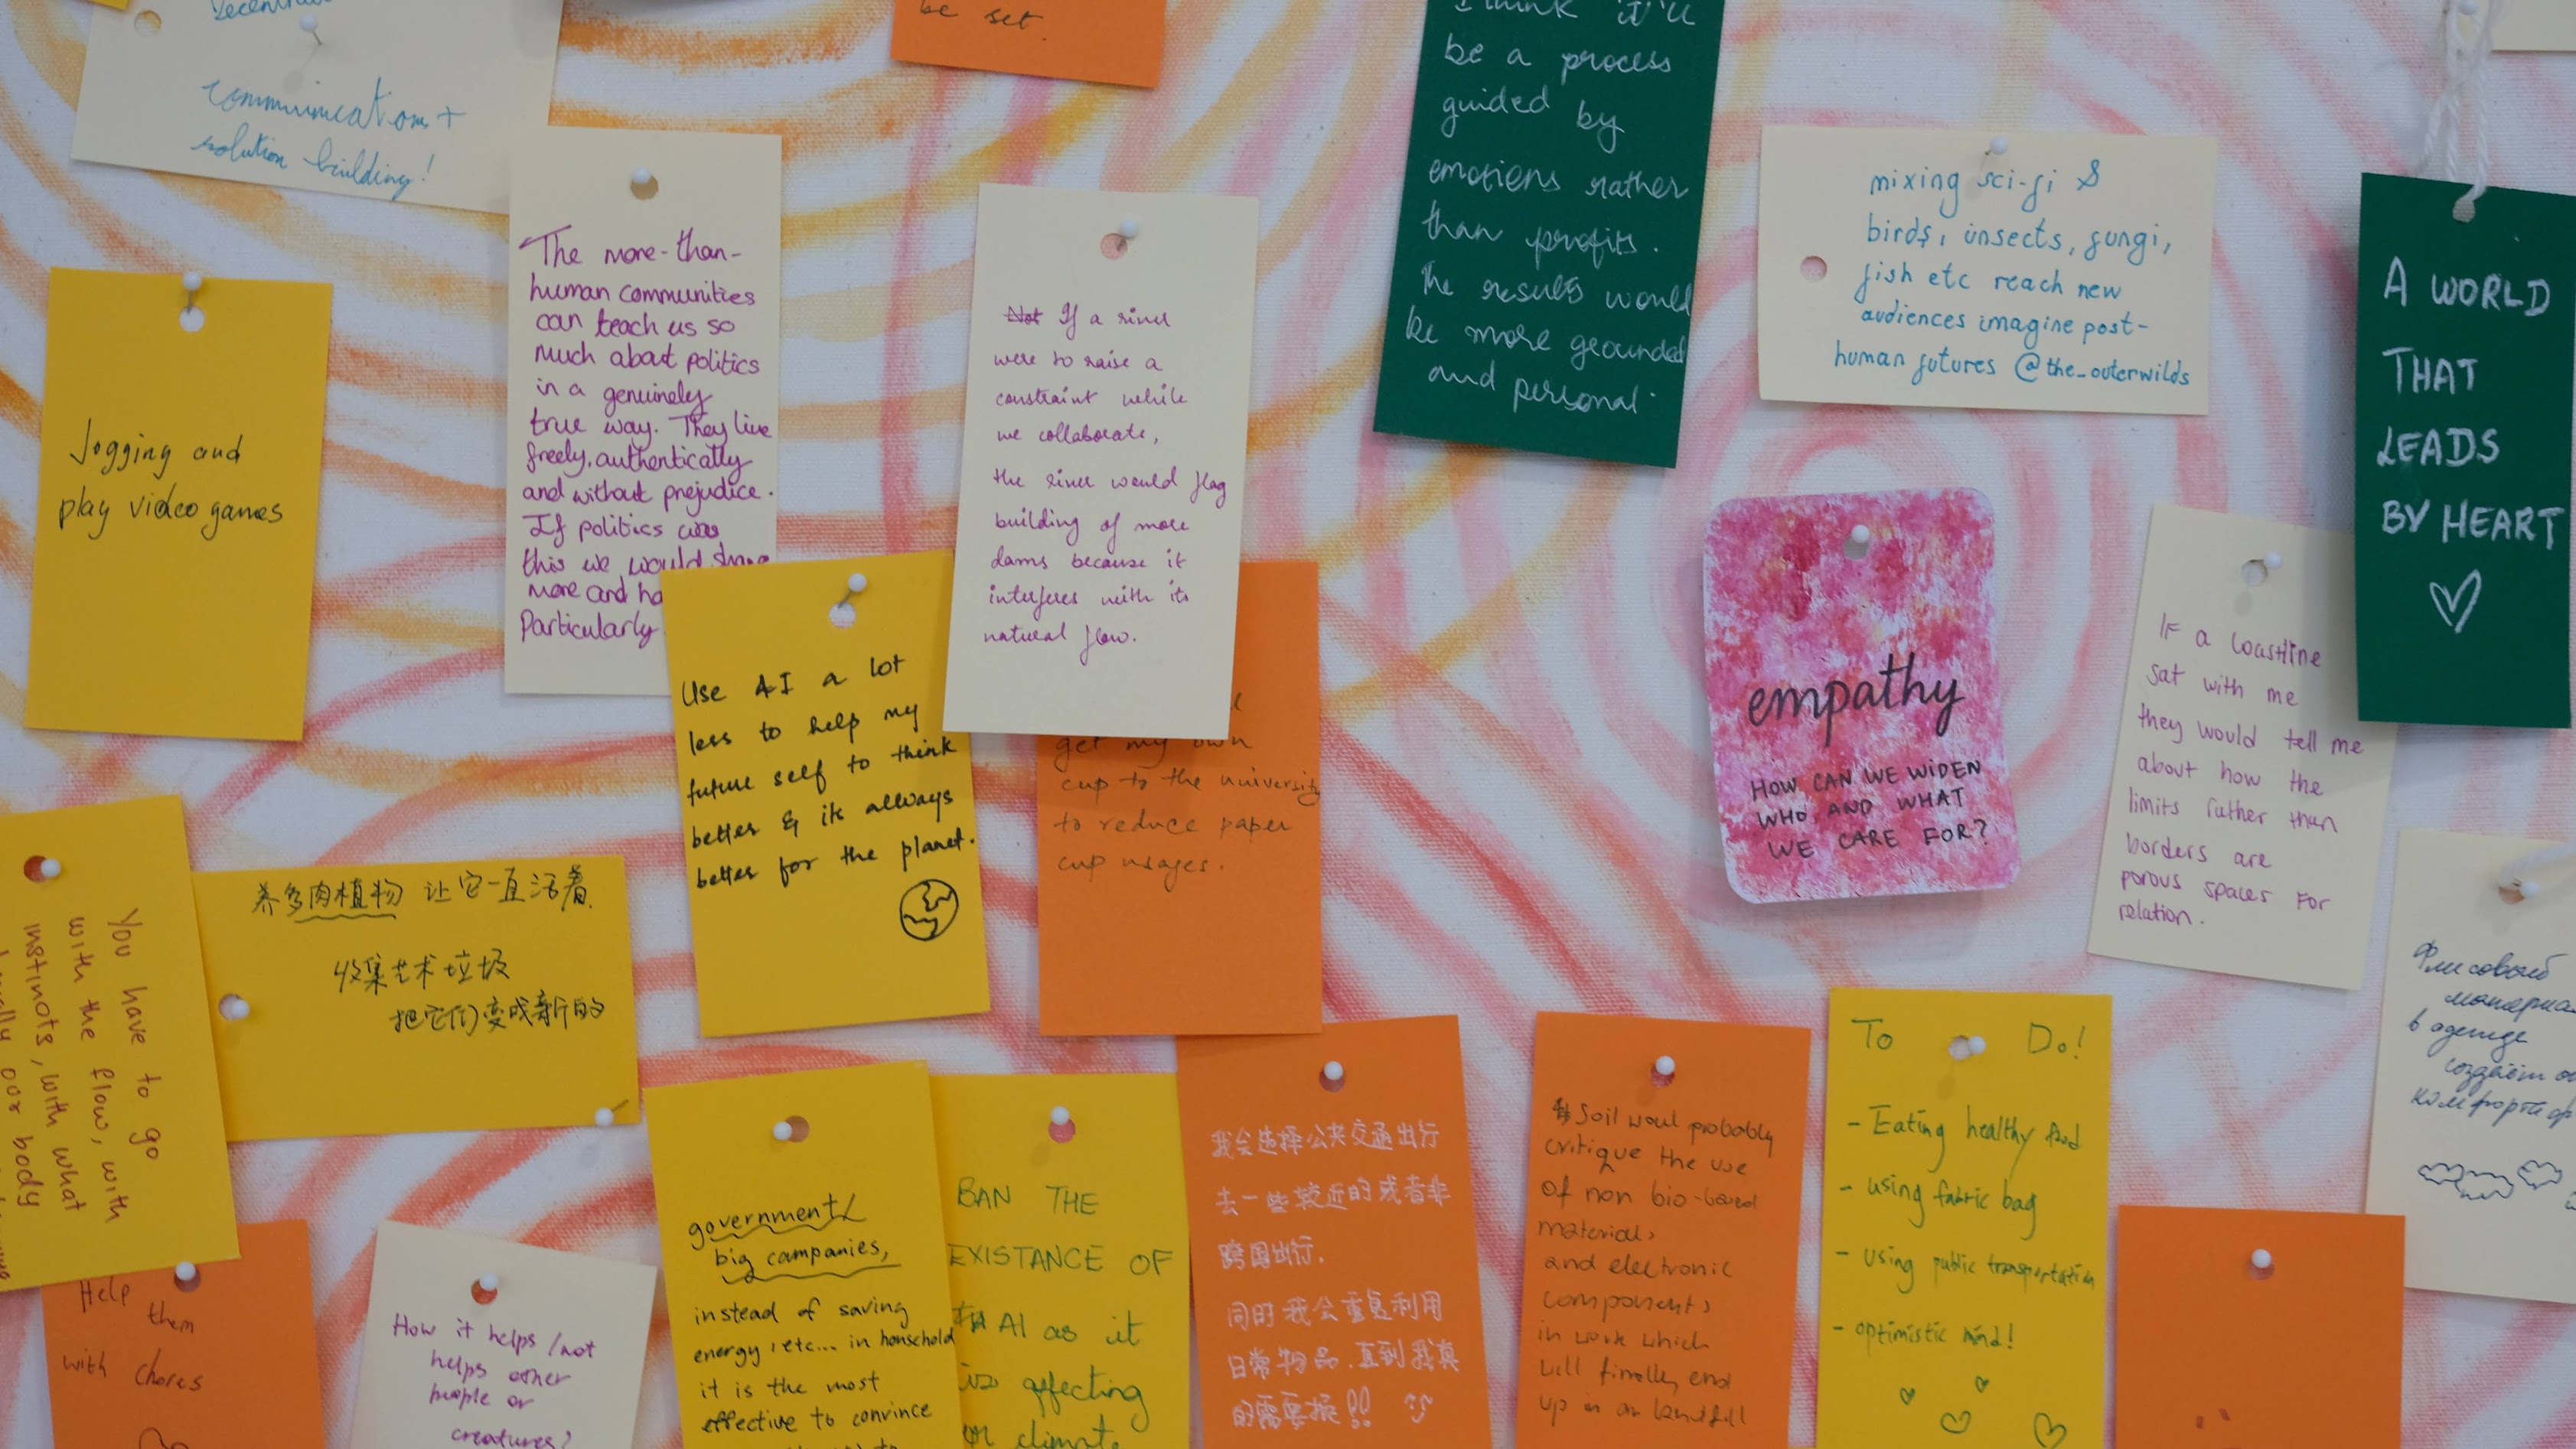 communication +
solution building!
be set.
I think it'll
be a process
guided by
emotions rather
than profits.
The results would
be more grounded
and personal.
mixing sci-fi &
birds, insects, fungi,
fish etc reach new
audiences imagine post-
human futures @the_outerwilds
A WORLD
THAT
LEADS
BY HEART
The more-than-
human communities
can teach us so
much about politics
in a genuinely
true way. They live
freely, authentically
and without prejudice.
If politics was
this we would share
more and
Particularly
Not If a river
were to raise a
constraint while
we collaborate,
the river would flag
building of more
dams because it
interferes with its
natural flow.
Jogging and
play video games
Use AI a lot
less to help my
future self to think
better & its always
better for the planet.
get my own
cup to the university
to reduce paper
cup usages.
empathy
HOW CAN WE WIDEN
WHO AND WHAT
WE CARE FOR?
If a coastline
sat with me
they would tell me
about how the
limits rather than
borders are
porous spaces for
relation.
Флисовый
в одежде
You have to go
with the flow, with
instinots, with what
our body
养多肉植物 让它一直活着.
收集艺术垃圾
把它们变成新的
Help
them
with chores
How it helps/not
helps other
people or
creatures?
government/
big companies,
instead of saving
energy, etc... in household
it is the most
effective to convince
BAN THE
EXISTANCE OF
AI as it
is affecting
climate
我会选择公共交通出行
去一些较近的或者非
跨国出行.
同时我会重复利用
日常物品.直到我真
的需要换!!
Soil woul probably
critique the use
of non bio-based
materials
and electronic
components
in work which
will finally end
up in a landfill
To Do!
- Eating healthy food
- using fabric bag
- using public transportation
- optimistic mind!